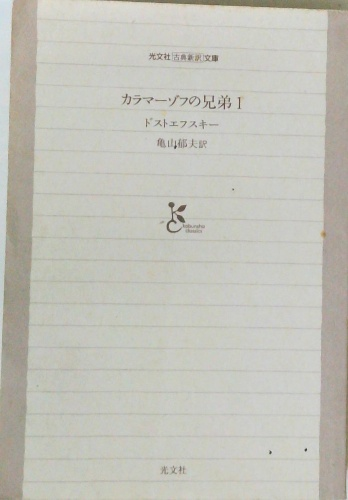 光文社古典新訳文庫
カラマーゾフの兄弟1
ドストエフスキー
亀山郁夫訳
kobunsha
classics
光文社